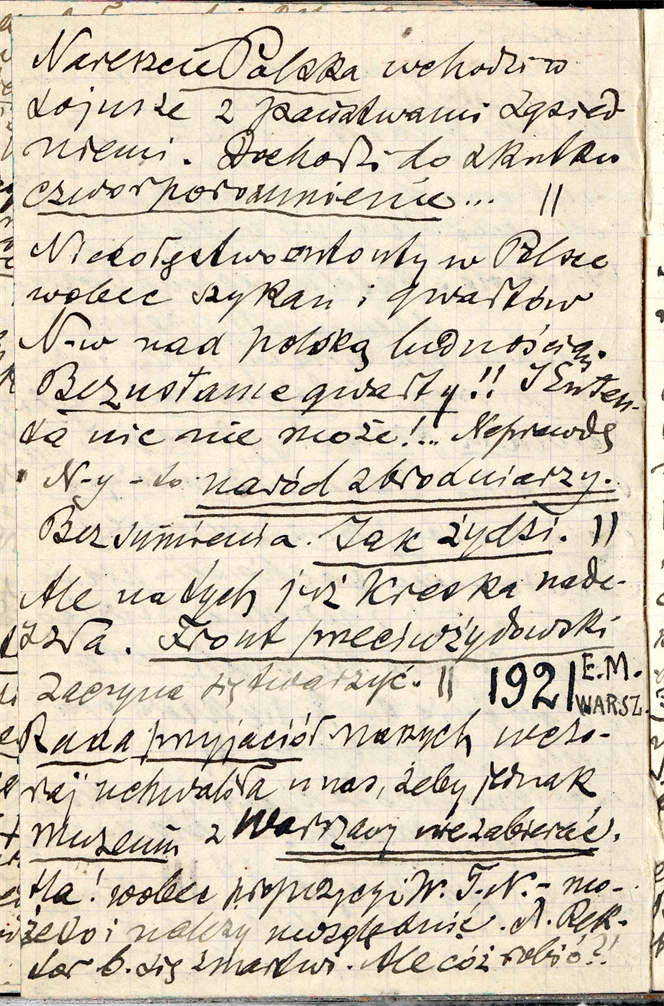 Nareszcie Polska wchodzi w
sojusze z państwami sąsied-
niemi. Dochodzi do skutku
czworporozumienie... ||
Niedołęstwo ententy w Polsce
wobec szykan i gwałtów
N-w nad polską ludnością.
Bezustanne gwałty!! I Enten-
ta nic nie może!... Naprawdę
N-y - to naród zbrodniarzy.
Bez sumienia. Jak żydzi. ||
Ale na tych już kreska nade-
szła. Front przeciwżydowski
zaczyna się twarzyć. || 1921 E.M.
WARSZ.
Rada przyjaciół naszych wczo-
raj uchwaliła u nas, żeby jednak
muzeum z Warszawy nie zabierać.
Ha! wobec propozycyi W. T. N. - mo-
że to i należy uwzględnić. A. Rek-
tor b. się zmartwi. Ale cóż robić?!